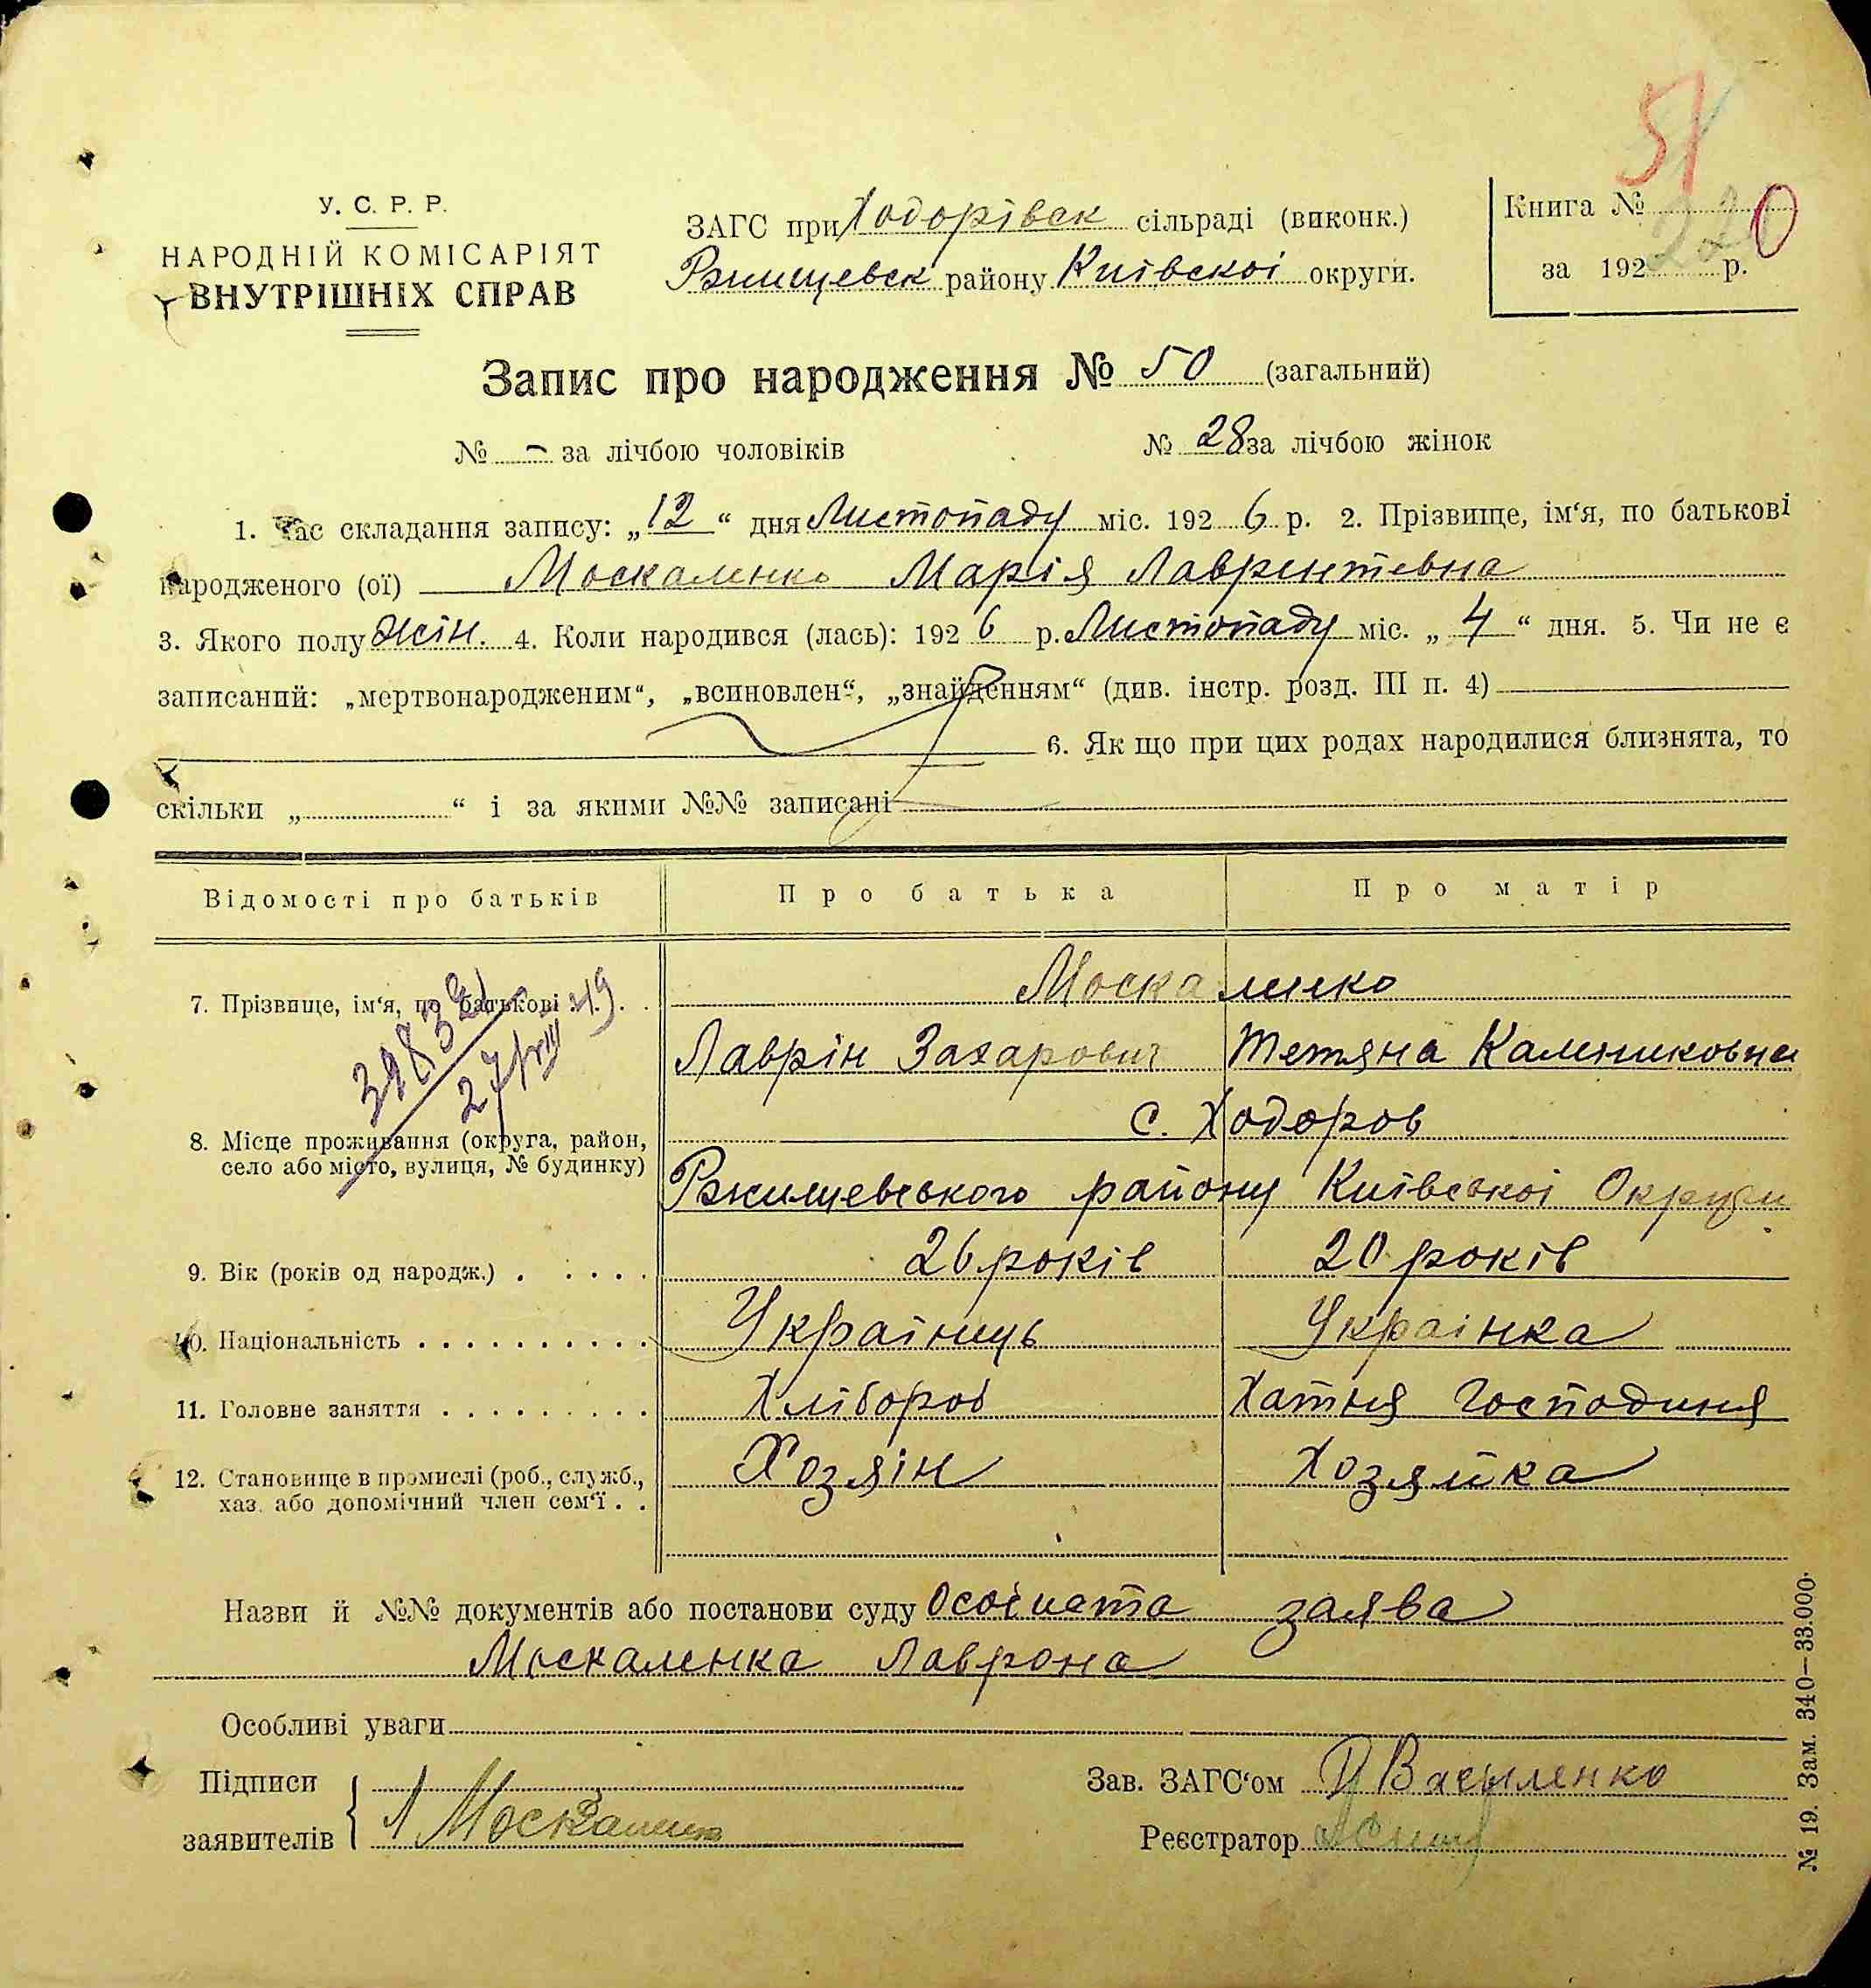 51
У. С. Р. Р.
НАРОДНІЙ КОМІСАРІЯТ
ВНУТРІШНІХ СПРАВ
ЗАГС при Ходорівск сільраді (виконк.)
Ржищевск району Київскоі округи.
Книга №
за 192 р.
Запис про народження № 50 (загальний)
№ - за лічбою чоловіків № 28 за лічбою жінок
1. Час складання запису: „12“ дня Листопаду міс. 192 6 р. 2. Прізвище, ім‘я, по батькові
народженого (ої) Москаленко Марія Лаврентевна
3. Якого полу жін. 4. Коли народився (лась): 192 6 р. Листопаду міс. „4“ дня. 5. Чи не є
записаний: „мертвонародженим“, „всиновлен“, „знайденням“ (див. інстр. розд. III п. 4)
6. Як що при цих родах народилися близнята, то
скільки „ “ і за якими №№ записані
Відомості про батьків Про батька Про матір
7. Прізвище, ім‘я, по батькові Москаленко
Лаврін Захарович Тетяна Калениковна
27/VIII 49
8. Місце проживання (округа, район,
село або місто, вулиця, № будинку)
с. Ходоров
Ржищевського району Київськоі Округи
9. Вік (років од народж.) . . . . . 26 років 20 років
10. Національність . . . . . . . . . . Українець Українка
11. Головне заняття . . . . . . . . . Хлібороб Хатня Господиня
12. Становище в промислі (роб., служб.,
хаз. або допомічний член сем‘ї . .
Хозяін Хозяйка
Назви й №№ документів або постанови суду Особиста заява
Москаленка Лаврона
Особливі уваги
Підписи
заявителів Л Москаленко
Зав. ЗАГС‘ом Василенко
Реєстратор
№ 19. Зам. 340—33.000.